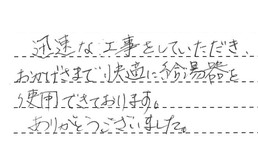 迅速な工事をしていただき、
おかげさまで快適に給湯器を
使用できております。
ありがとうございました。